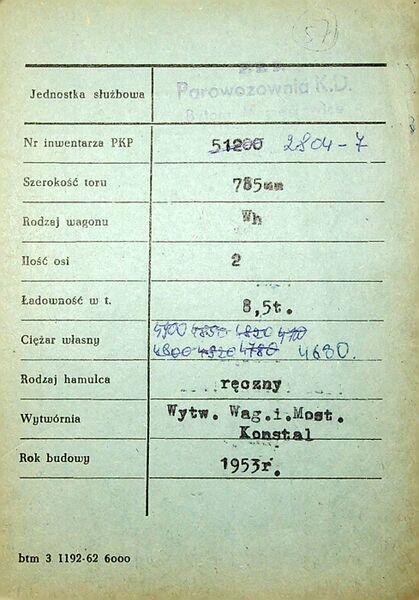 571
Jednostka służbowa Parowozownia K.D.
Nr inwentarza PKP 51200 2804-7
Szerokość toru 785mm
Rodzaj wagonu Wh
Ilość osi 2
Ładowność w t. 8,5t.
4900 4850 4820 4710
Ciężar własny 4800 4820 4780 4680.
Rodzaj hamulca ręczny
Wytwórnia Wytw. Wag.i.Most.
Konstal
Rok budowy 1953r.
btm 3 1192-62 6000